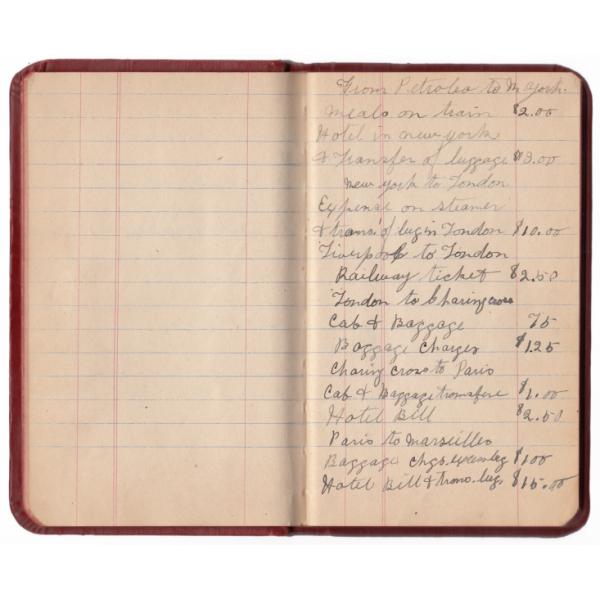 From Petrolea to N York.
Meals on train $2.00
Hotel in new york
& Transfer of luggage $3.00
New york to London
Expense on steamer
& trans. of lug in London $10.00
Liverpool to London
Railway ticket $2.50
London to Charing cross
Cab & Baggage 75
Baggage Charges $1.25
Charing cross to Paris
Cab & Baggage transfere $1.00
Hotel Bill $2.50
Paris to Marseilles
Baggage chgs. excess lug $1.00
Hotel Bill & trans. lug. $15.00